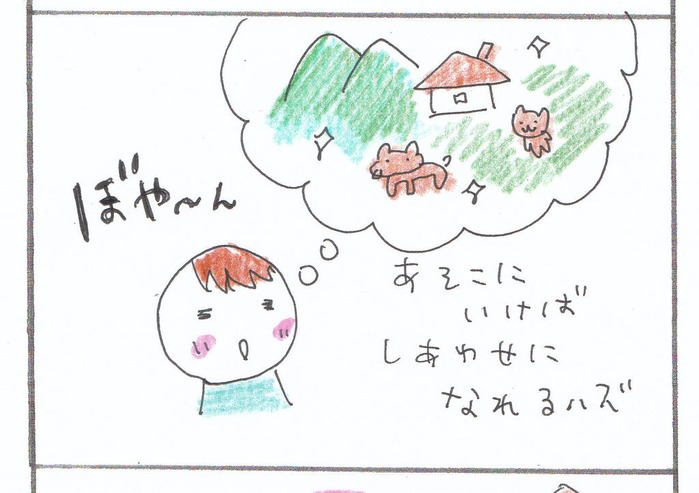 ぼや～ん
あそこに
いけば
しあわせに
なれるハズ